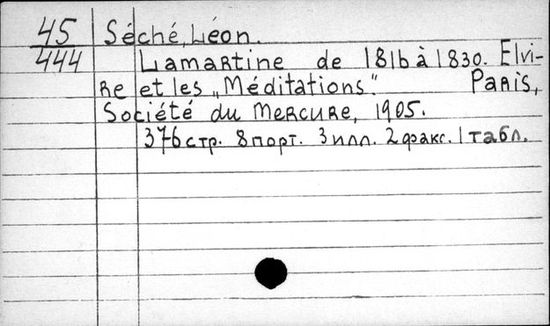 45 Séché, Léon.
444 Lamartine de 1816 à 1830. Elvi-
re et les „Méditations." Paris,
Société du Mercure, 1905.
376 стр. 8 порт. 3 илл. 2 факс. 1 табл.